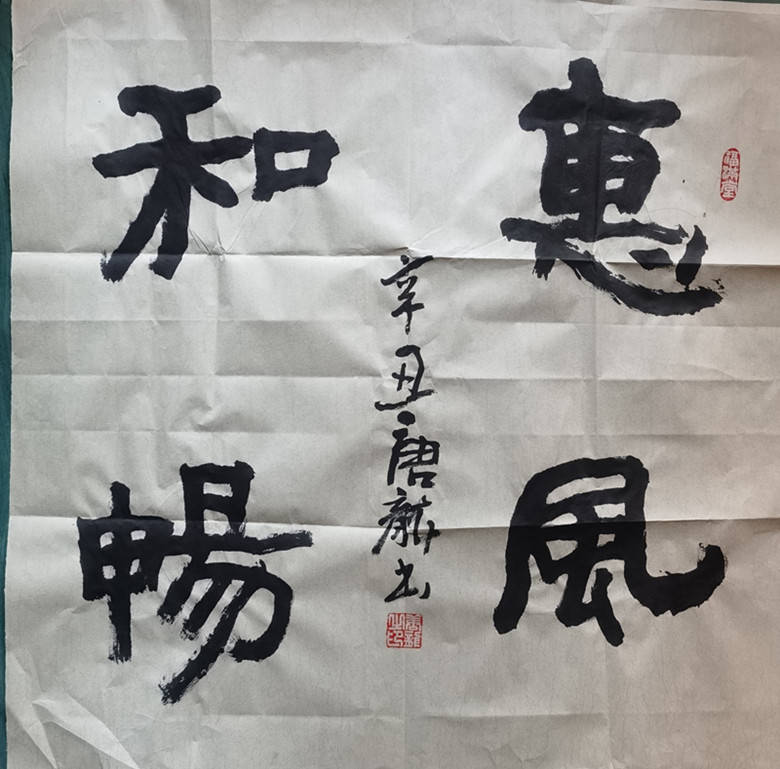 惠風
和暢
辛丑唐龍书